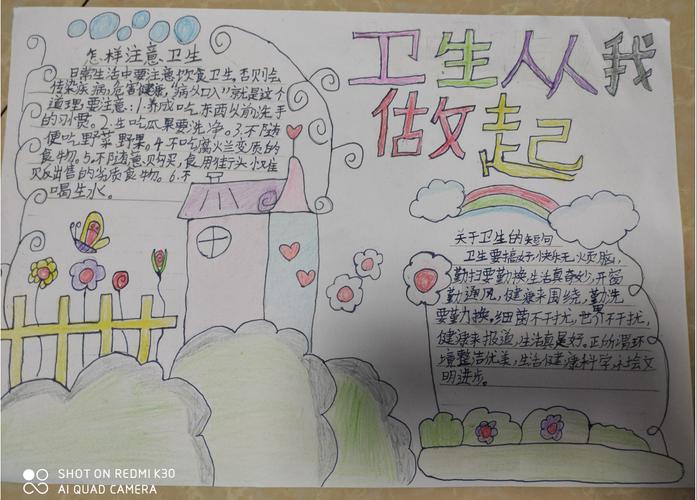 卫生从我
做起
怎样注意卫生
日常生活中要注意饮食卫生,否则会
传染疾病,危害健康,"病从口入"就是这个
道理.要注意:1.养成吃东西以前洗手
的习惯。2.生吃瓜果要洗净。3.不随
便吃野菜野果。4.不吃腐烂变质的
食物。5.不随意购买,食用街头小摊
贩出售的劣质食物。6.不
喝生水。
关于卫生的短句
卫生要搞好,快乐无烦恼,
勤扫要勤换生活真奇妙,开窗
勤通风,健康来围绕,勤洗
要勤力换.细菌不干扰,不干扰,
健康来报道,生活真是好。
境整洁优美,生活健康科学,永绘文
明进步。
SHOT ON REDMI K30
AI QUAD CAMERA